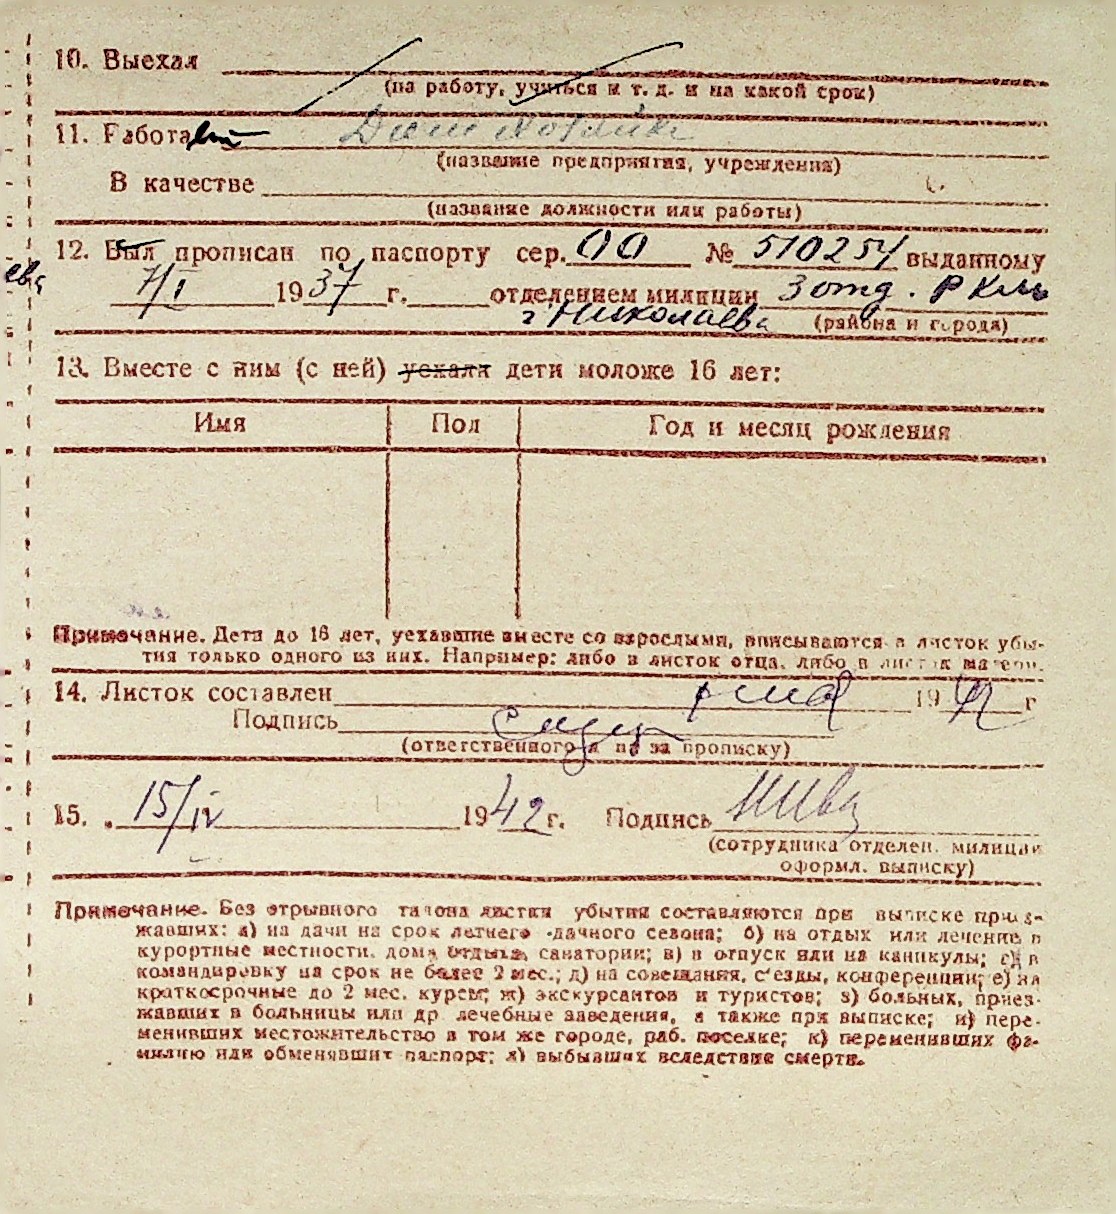 10. Выехал
(на работу, учиться и т. д. и на какой срок)
11. Работа
(название предприятия, учреждения)
В качестве
(название должности или работы)
12. Был прописан по паспорту сер. 00 № 510254 выданному
7/I 1937 г. отделением милиции 3 отд. РКМ
г Николаева (района и города)
13. Вместе с ним (с ней) уехали дети моложе 16 лет:
Имя Пол Год и месяц рождения
Примечание. Дети до 16 лет, уехавшие вместе со взрослыми, вписываются в листок убы-
тия только одного из них. Например: либо в листок отца, либо в листок матери.
14. Листок составлен 1942 г
Подпись
(ответственного л по за прописку)
15. 15/IV 1942 г. Подпись
(сотрудника отделен. милиции
оформл. выписку)
Примечание. Без отрывного талона листки убытия составляются при выписке приез-
жавших: а) на дачи на срок летнего -дачного сезона; б) на отдых или лечение в
курортные местности, дома отдыха, санатории; в) в отпуск или на каникулы; г) в
командировку на срок не более 2 мес.; д) на совещания, с'езды, конференции; е) на
краткосрочные до 2 мес. курсы; ж) экскурсантов и туристов; з) больных, приез-
жавших в больницы или др лечебные заведения, а также при выписке; и) пере-
менивших местожительство в том же городе, раб. поселке; к) переменивших фа-
милию или обменявших паспорт; л) выбывших вследствие смерти.